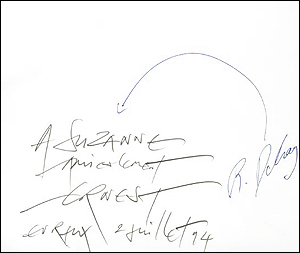 A SUZANNE
Amicalement
ERNEST
R.
EVREUX 2 Juillet 94